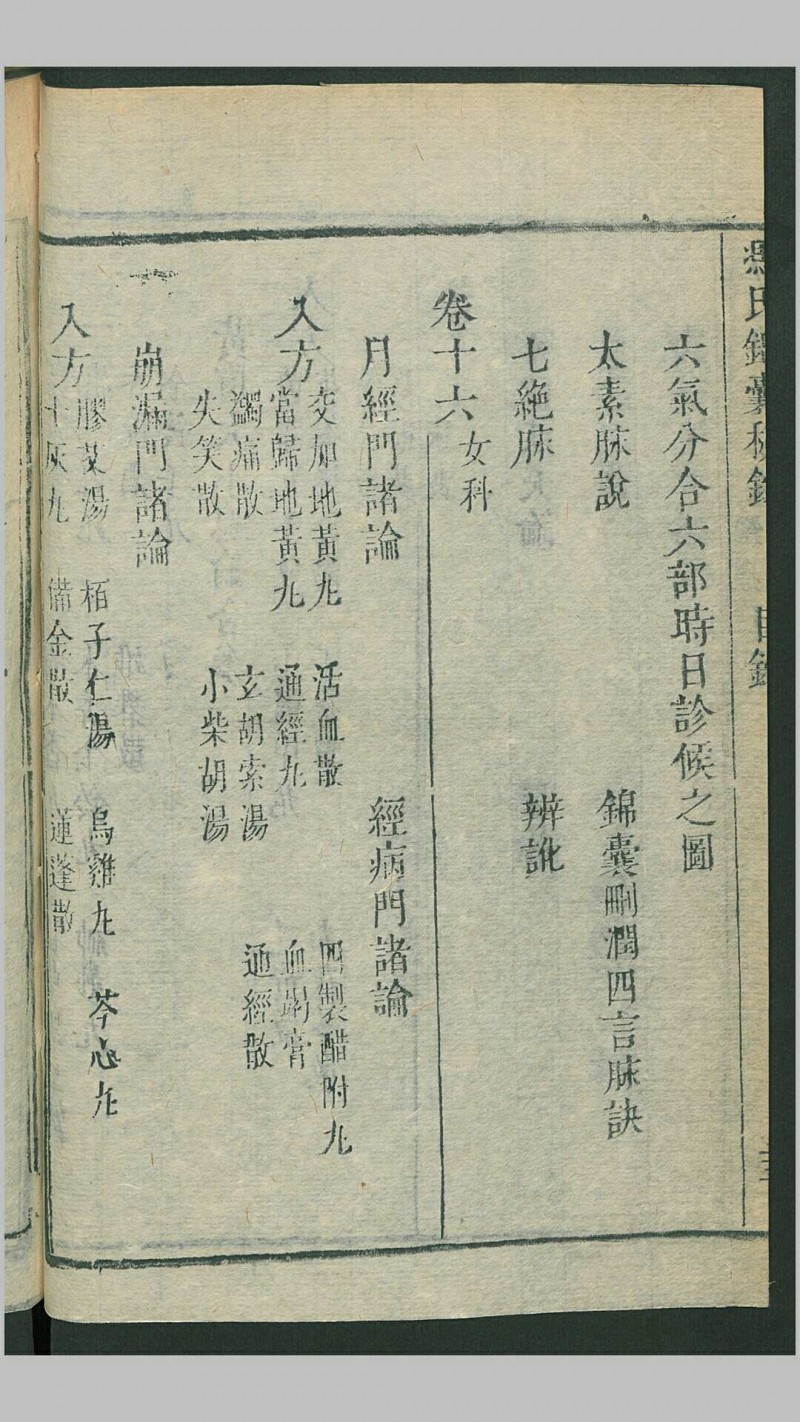 馮氏錦囊秘錄 目錄
六氣分合六部時日診候之圖
太素脉說 錦囊刪潤四言脉訣
七絶脉 辨訛
卷十六女科
月經門諸論 經病門諸論
入方
交加地黃丸 活血散 四製醋附丸
當歸地黃丸 通經丸 血竭膏
蠲痛散 玄胡索湯 通經散
失笑散 小柴胡湯
崩漏門諸論
入方
膠艾湯 栢子仁湯 烏雞丸 芩心丸
十灰丸 備金散 蓮蓬散